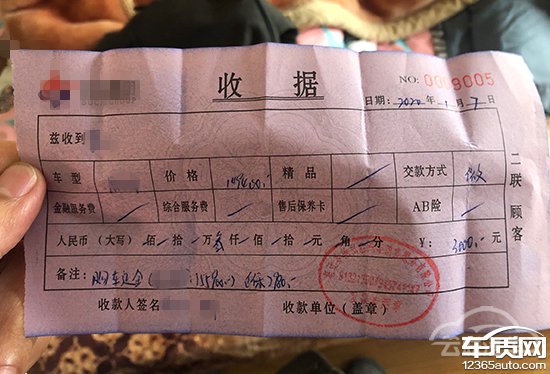 收据
NO: 0009005
日期: 2020年1月7日
兹收到
车型 价格 精品 交款方式
金融服务费 综合服务费 售后保养卡 AB险
人民币（大写） 佰 拾 万 叁 仟 佰 拾 元 角 分 ¥: 3000.-
备注: 购车定金
收款人签名 收款单位（盖章）
二联 顾客
车质网
12365auto.com